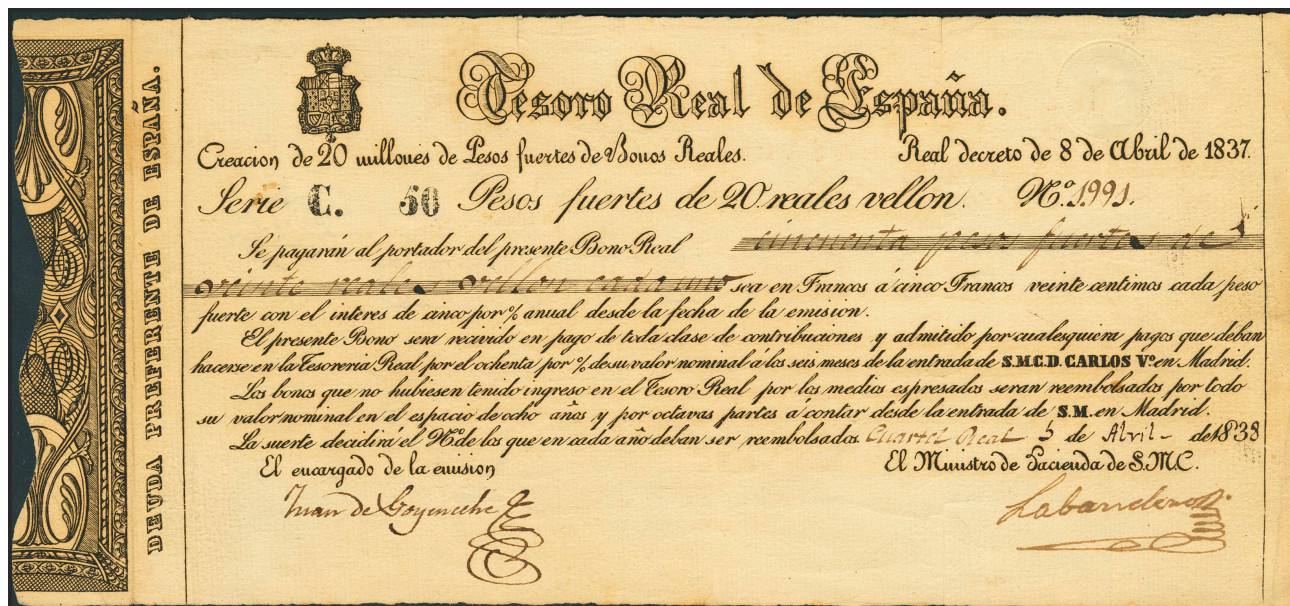 DEUDA PREFERENTE DE ESPAÑA.
Tesoro Real de España.
Creacion de 20 millones de Pesos fuertes de Bonos Reales. Real decreto de 8 de Abril de 1837.
Serie C. 50 Pesos fuertes de 20 reales vellon. Nº 1991.
Se pagarán al portador del presente Bono Real cincuenta pesos fuertes de
veinte reales vellon cada uno sea en Francos á cinco Francos veinte centimos cada peso
fuerte con el interes de cinco por % anual desde la fecha de la emision.
El presente Bono sera recivido en pago de toda clase de contribuciones y admitido por cualesquiera pagos que deban
hacerse en la Tesoreria Real por el ochenta por % de su valor nominal á los seis meses de la entrada de S.M.C.D. CARLOS Vº. en Madrid.
Los bonos que no hubiesen tenido ingreso en el Tesoro Real por los medios espresados seran reembolsados por todo
su valor nominal en el espacio de ocho años y por octavas partes a contar desde la entrada de S.M. en Madrid.
La suerte decidirá el Nº de los que en cada año deban ser reembolsados Cuartel Real 5 de Abril - de 1838
El encargado de la emision El Ministro de Hacienda de S.M.C.
Juan de Goyeneche Labandero